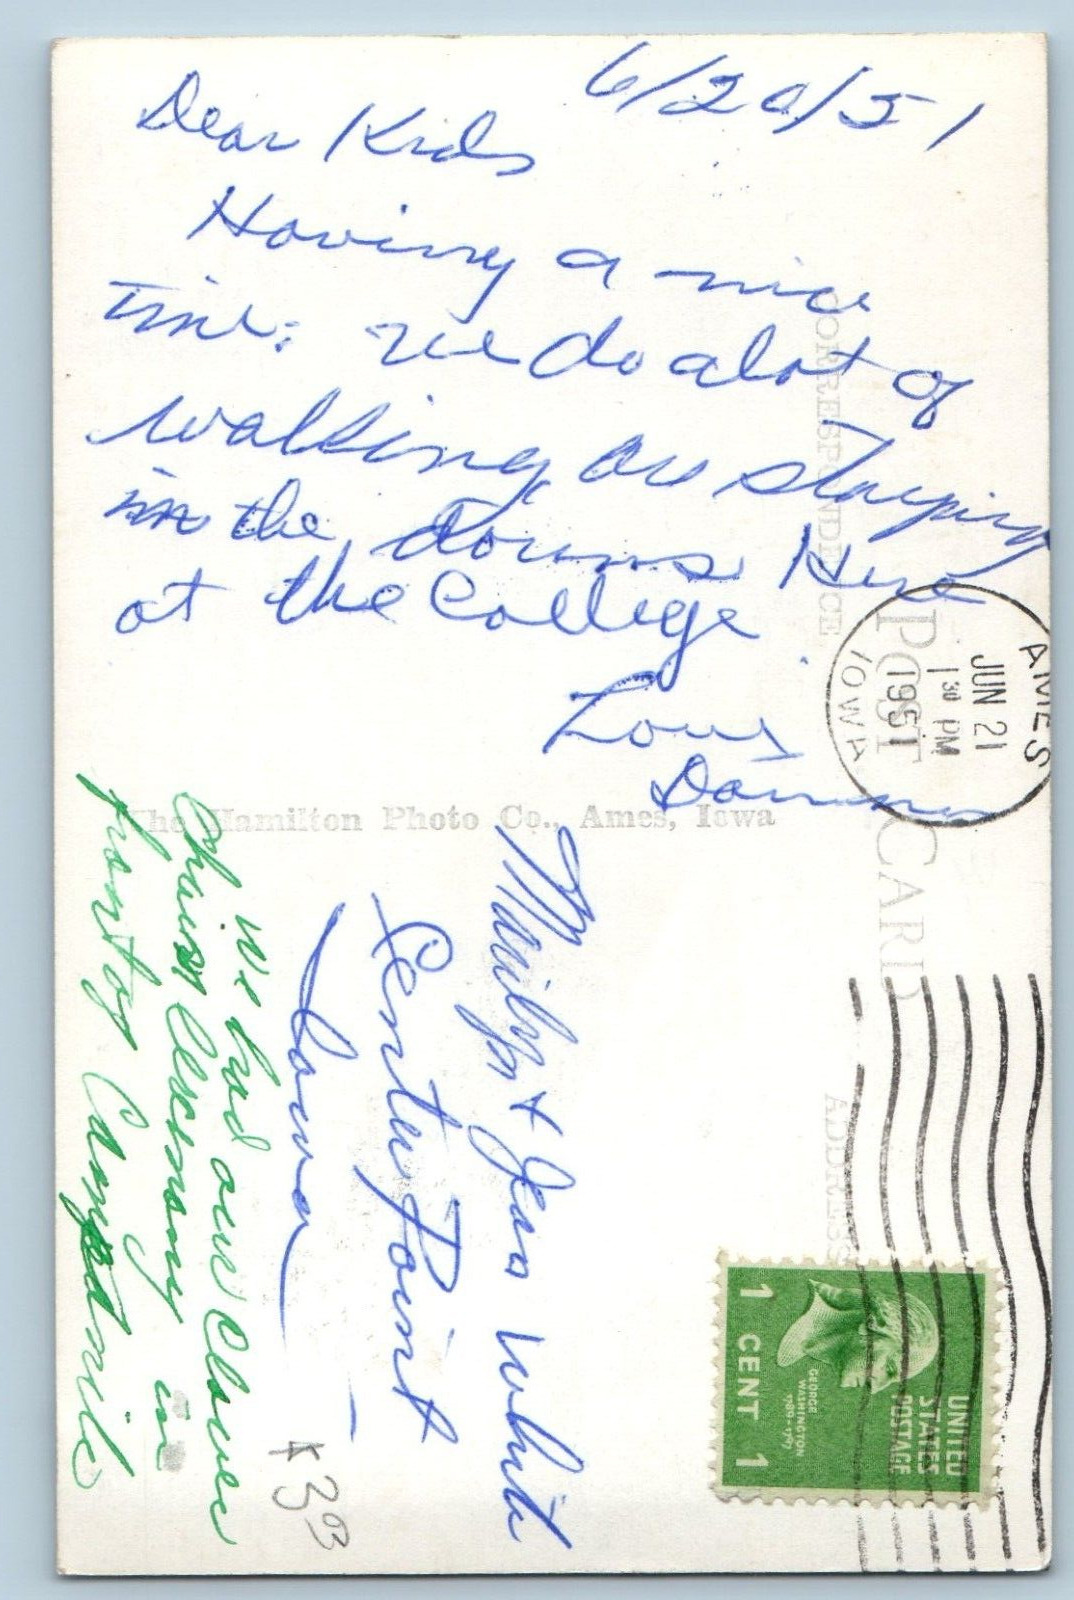 6/20/51
Dear Kids
Having a nice
time: we do alot of
walking are staying
in the dorms Here
at the College
Love
CORRESPONDENCE
POST CARD
ADDRESS
AMES
JUN 21
1 30 PM
1951
IOWA
The Hamilton Photo Co., Ames, Iowa
Marilyn + Jean White
Center Point
Iowa
We had our Clover
Chain Ceremony in
front of Campanile
UNITED
STATES
POSTAGE
GEORGE
WASHINGTON
1789-1797
1 CENT 1